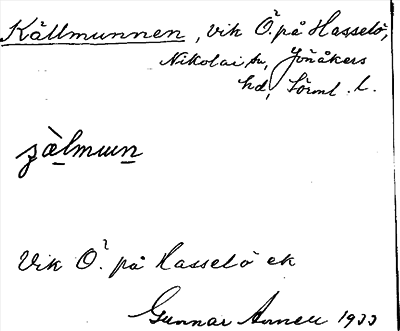 Källmunnen, vik Ö. på Hasselö,
Nikolai sn, Jönåkers
hd, Sörml. l.
Vik Ö. på Hasselö ek
Gunnar Arnell 1933